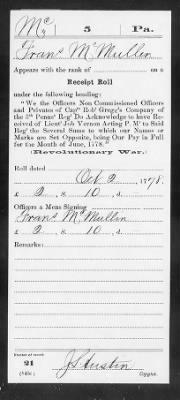 Mc | 5 | Pa.
Frans McMullin
Appears with the rank of on a
Receipt Roll
under the following heading:
"We the Officers Non Commissioned Officers
and Privates of Capt Robt Gregg's Company of
the 5th Penns Regt Do Acknowledge to have Re-
ceived of Lieut Job Vernon Acting P. Mr to Said
Regt the Several Sums to which our Names or
Marks are Set Opposite, being Our Pay in Full
for the Month of June, 1778."
(Revolutionary War.)
Roll dated
Oct 2, 1778.
£ 2, s 10, d
Officers & Mens Signing
Frans McMullin
£ 2, s 10, d
Remarks:
Number of record:
21
J S Austin
Copyist.